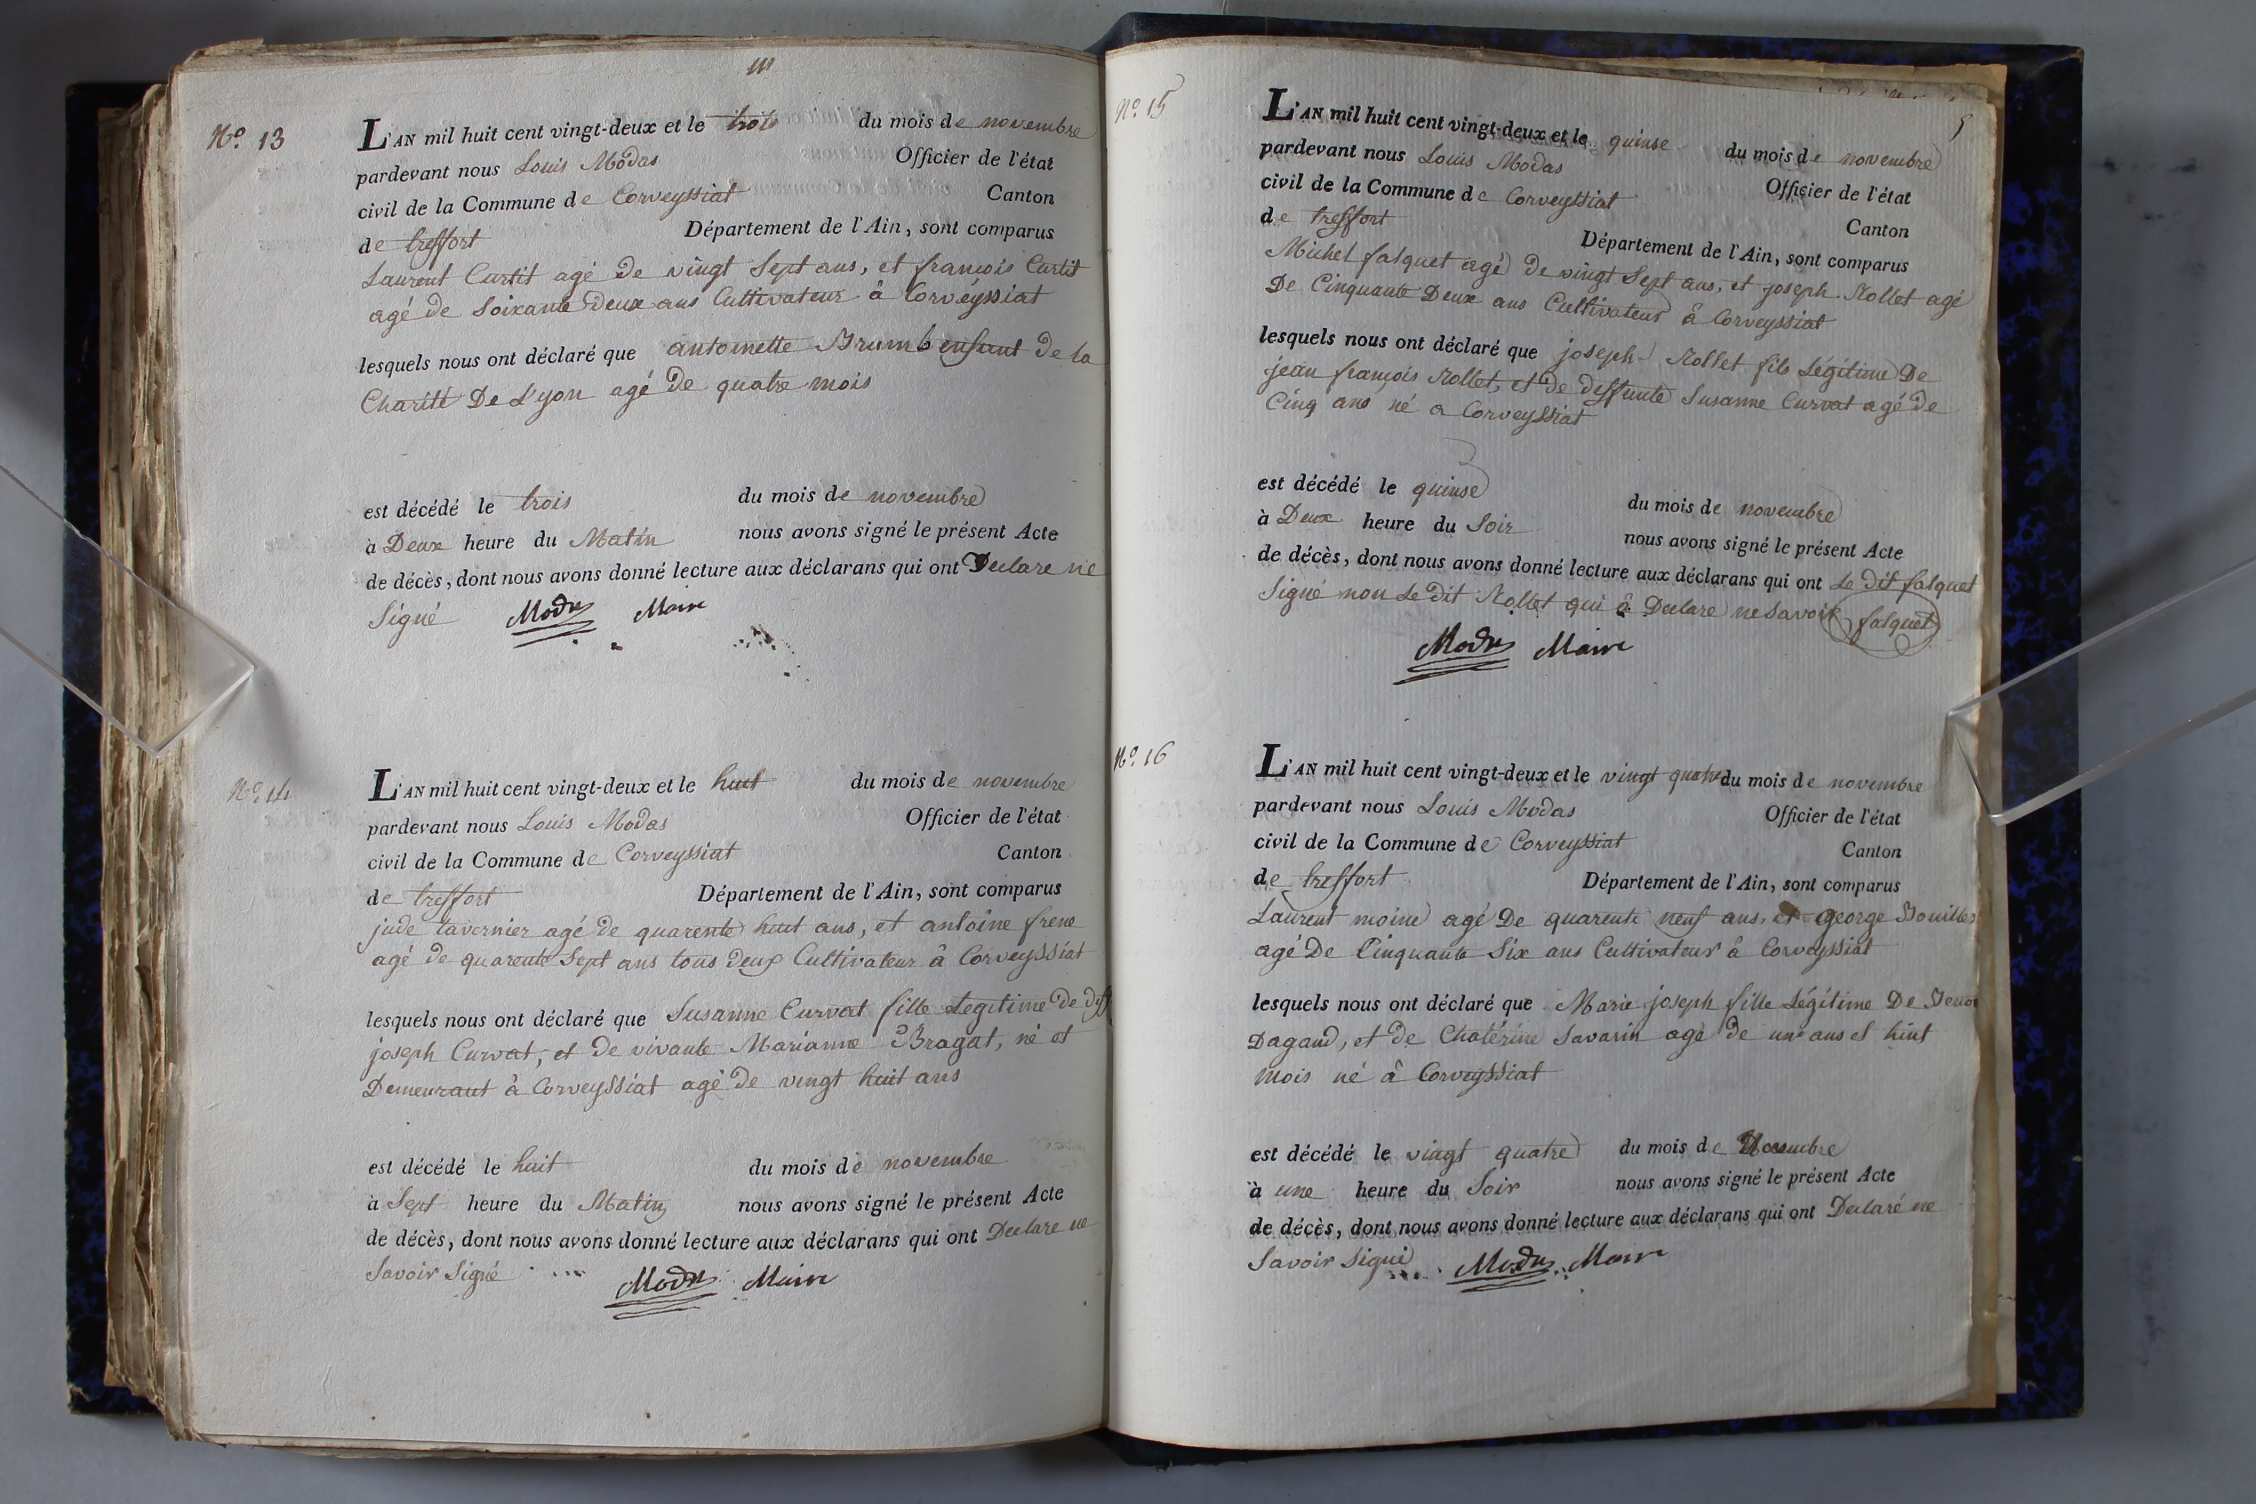 N.º 13
L'AN mil huit cent vingt-deux et le trois du mois de novembre
pardevant nous Louis Modas Officier de l'état
civil de la Commune de Corveyssiat Canton
de treffort Département de l'Ain, sont comparus
Laurent Curtit agé de vingt Sept ans, et françois Curtit
agé de Soixante Deux ans Cultivateur â Corveyssiat
lesquels nous ont déclaré que antoinette Brumb enfant de la
Charité De Lyon agé de quatre mois
est décédé le trois du mois de novembre
à Deux heure du Matin nous avons signé le présent Acte
de décès, dont nous avons donné lecture aux déclarans qui ont Declare ne
Signé Modas Maire
N.º 14
L'AN mil huit cent vingt-deux et le huit du mois de novembre
pardevant nous Louis Modas Officier de l'état
civil de la Commune de Corveyssiat Canton
de treffort Département de l'Ain, sont comparus
jude tavernier agé de quarente huit ans, et antoine frene
agé de quarente Sept ans tous deux Cultivateur â Corveyssiat
lesquels nous ont déclaré que Susanne Curvat fille Legitime de deff
joseph Curvat, et de vivante Marianne Bragat, né et
Demeurant â Corveyssiat agé de vingt huit ans
est décédé le huit du mois de novembre
à Sept heure du Matin nous avons signé le présent Acte
de décès, dont nous avons donné lecture aux déclarans qui ont Declare ne
Savoir Signé Modas Maire
5
N.º 15
L'AN mil huit cent vingt-deux et le quinse du mois de novembre
pardevant nous Louis Modas Officier de l'état
civil de la Commune de Corveyssiat Canton
de treffort Département de l'Ain, sont comparus
Michel falquet agé de vingt Sept ans, et joseph Nollet agé
De Cinquante Deux ans Cultivateur â Corveyssiat
lesquels nous ont déclaré que joseph Nollet fils Légitime De
jean françois Nollet, et de deffunte Susanne Curvat agé de
Cinq ans né a Corveyssiat
est décédé le quinse du mois de novembre
à Deux heure du Soir nous avons signé le présent Acte
de décès, dont nous avons donné lecture aux déclarans qui ont Le dit falquet
Signé non Le dit Nollet qui â Declare ne Savoir falquet
Modas Maire
N.º 16
L'AN mil huit cent vingt-deux et le vingt quatre du mois de novembre
pardevant nous Louis Modas Officier de l'état
civil de la Commune de Corveyssiat Canton
de treffort Département de l'Ain, sont comparus
Laurent moine agé De quarente neuf ans, et george
agé De Cinquante Six ans Cultivateur â Corveyssiat
lesquels nous ont déclaré que Marie joseph fille Légitime De
Dagand, et de Chatérine Savarin agé de un ans et huit
mois né â Corveyssiat
est décédé le vingt quatre du mois de
à une heure du Soir nous avons signé le présent Acte
de décès, dont nous avons donné lecture aux déclarans qui ont Declaré ne
Savoir Signé Modas Maire